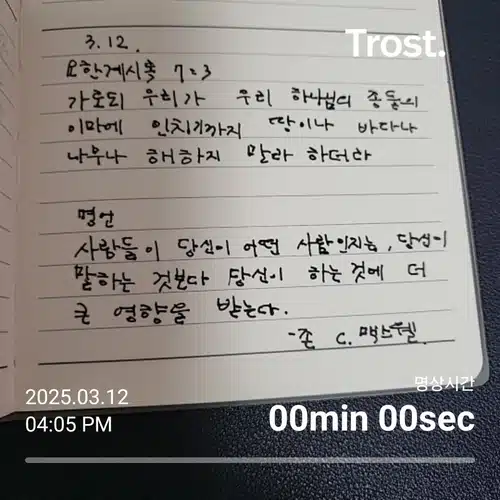 Trost.
3.12.
요한계시록 7:3
가로되 우리가 우리 하나님의 종들의
이마에 인치기까지 땅이나 바다나
나무나 해하지 말라 하더라
명언
사람들이 당신이 어떤 사람인지는, 당신이
말하는 것보다 당신이 하는 것에 더
큰 영향을 받는다.
-존 C. 맥스웰.
명상시간
2025.03.12
04:05 PM
00min 00sec